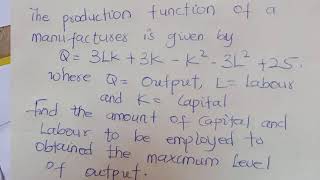 The production function of a
manufacturer is given by
Q = 3LK + 3K - K² - 3L² + 25.
Where Q = Output, L = Labour
and K = Capital
Find the amount of Capital and
Labour to be employed to
obtained the maximum level
of output.